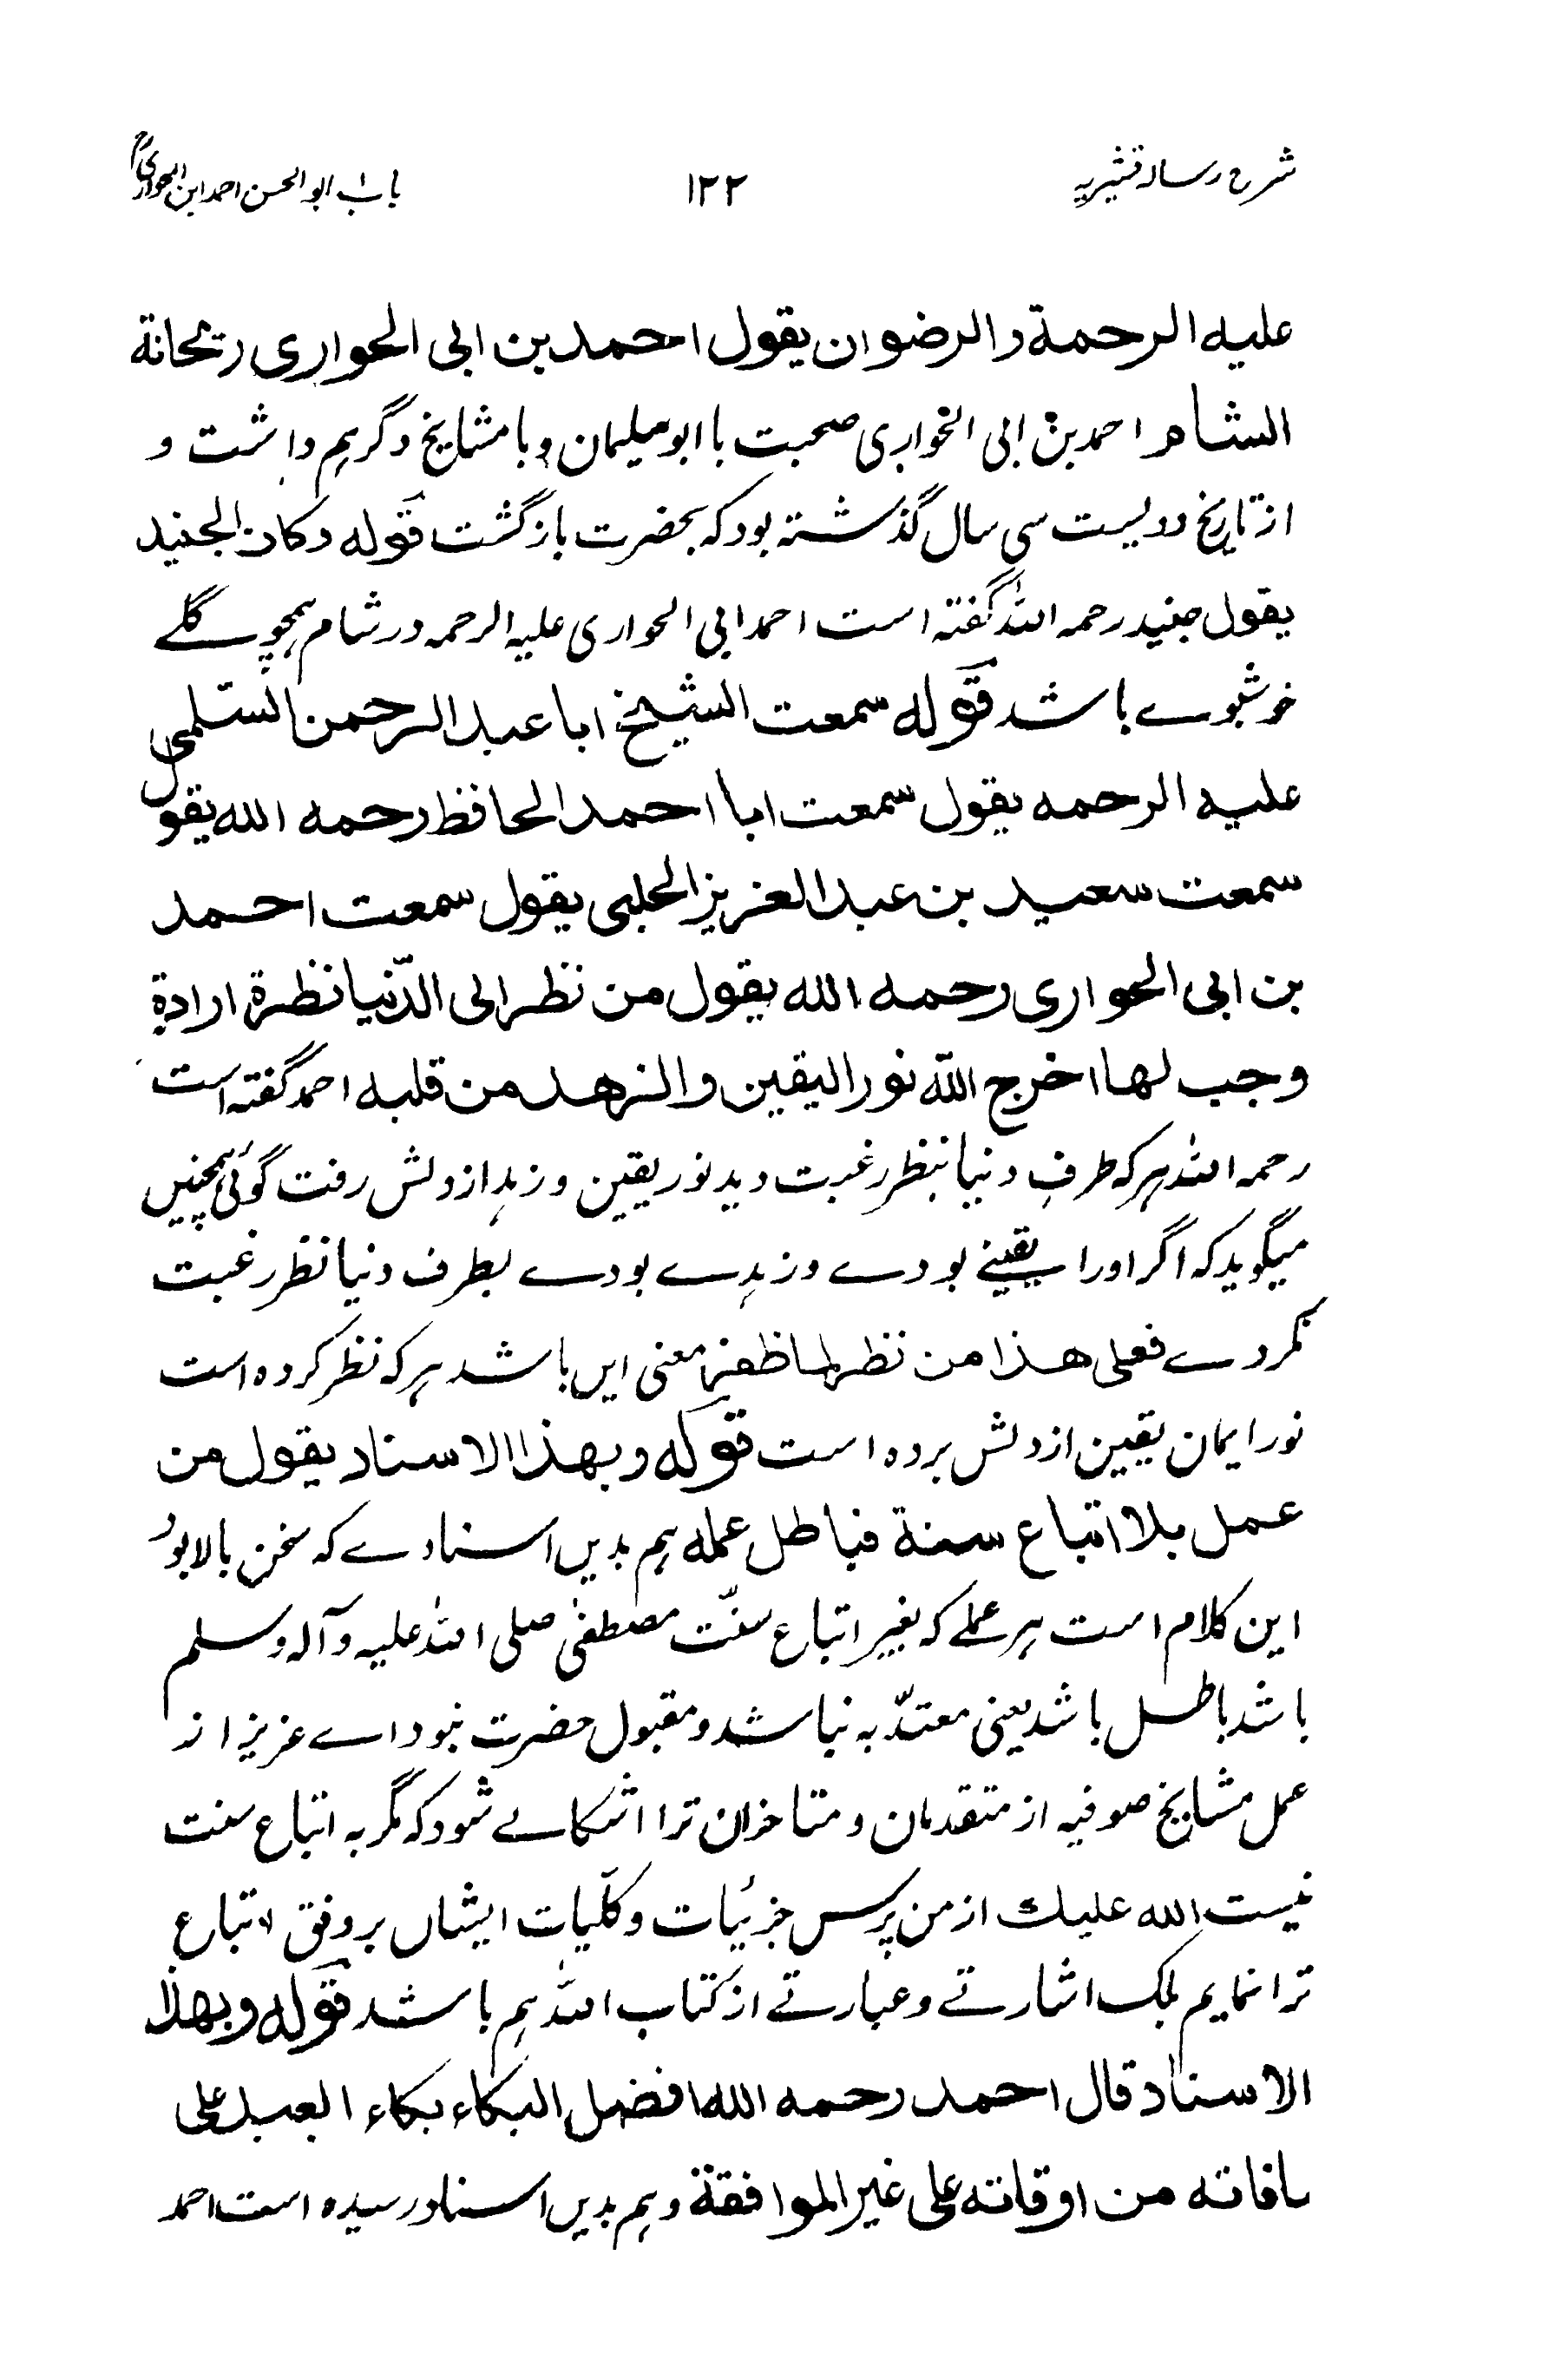 شرح رسالہ قشیریہ
۱۲۲
باب ابو الحسن احمد ابن الحواری
علیه الرحمة والرضوان یقول احمد بن ابی الحواری ریحانة
الشام احمد بن ابی الحواری صحبت با ابو سلیمان و با مشایخ دگر ہم داشت و
از تاریخ دویست سی سال گذشتہ بود کہ بحضرت بازگشت قوله وکان الجنید
یقول جنید رحمہ اللہ گفتہ است احمد ابی الحواری علیہ الرحمہ در شام ہمچو گلے
خوشبوے باشد قوله سمعت الشیخ ابا عبد الرحمن السّلمی
علیه الرحمه یقول سمعت ابا احمد الحافظ رحمه الله یقول
سمعت سعید بن عبد العزیز الحلبی یقول سمعت احمد
بن ابی الحواری رحمه الله یقول من نظر الی الدّنیا نظرة ارادةٍ
وحب لها اخرج اللّٰه نور الیقین والزهد من قلبه احمد گفتہ است
رحمہ اللہ ہر کہ طرفِ دنیا بنظر رغبت دید نور یقین و زہد از دلش رفت گوئی ہمچنیں
میگوید کہ اگر او را یقینے بودے و زہدے بودے بطرف دنیا نظر رغبت
نکردے فعلی هذا من نظر معنی ایں باشد ہر کہ نظر کردہ است
نور ایمان یقین از دلش بردہ است قوله وبهذا الاسناد یقول من
عمل بلا اتباع سنة فباطل عمله ہم بدیں اسنادے کہ سخن بالا بود
این کلام است ہر عملے کہ بغیر اتباع سنّت مصطفٰی صلی اللہ علیہ وآلہ وسلم
باشد باطل باشد یعنی معتدّ بہ نباشد و مقبول حضرت نبود اے عزیز از
عمل مشایخ صوفیہ از متقدمان و متاخران ترا اشکالے شود کہ مگر بہ اتباع سنت
نیست الله علیك از من پرس جزئیات و کلّیات ایشاں بر وفق اتباع
ترا نمایم بلک اشارتے و عبارتے از کتاب اللہ ہم باشد قوله وبهذا
الاسناد قال احمد رحمه الله افضل البکاء بکاء العبد علی
مافاته من اوقاته علی غیر الموافقة و ہم بدیں اسناد رسیدہ است احمد